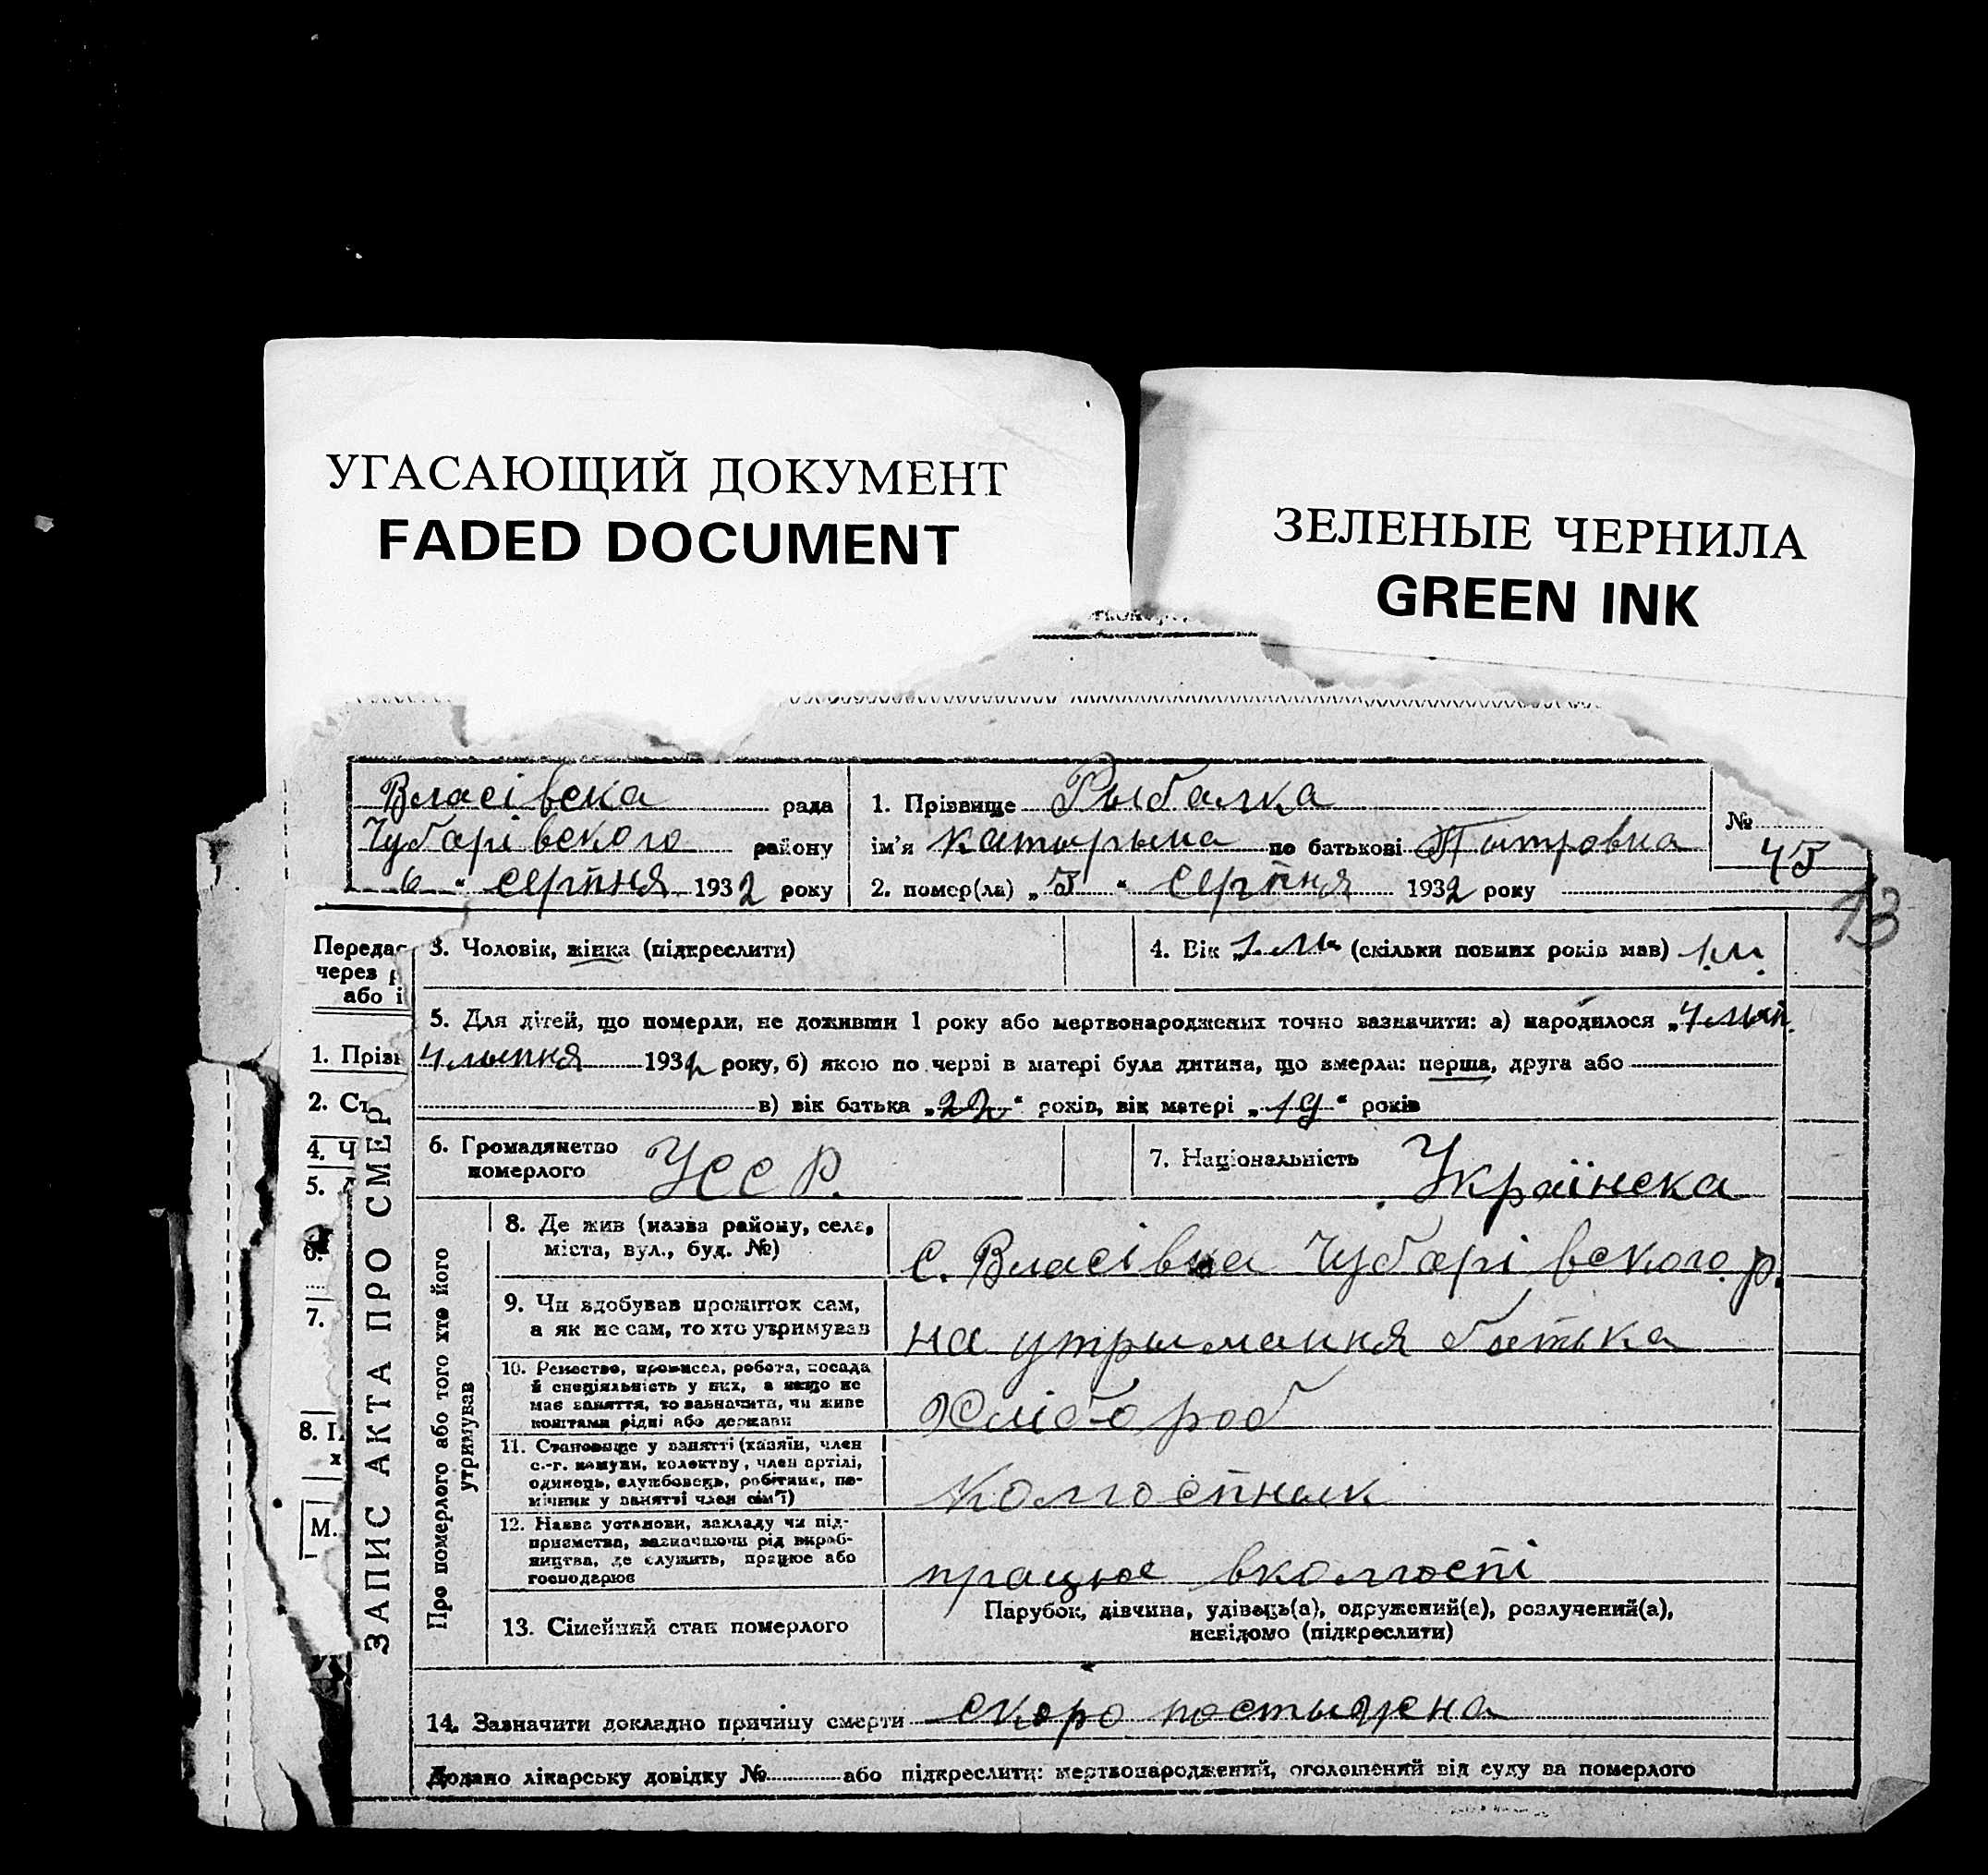 УГАСАЮЩИЙ ДОКУМЕНТ
FADED DOCUMENT
ЗЕЛЕНЫЕ ЧЕРНИЛА
GREEN INK
Власівска рада
Чубарівского району
6 " серпня 1932 року
1. Прізвище Рыбалка
ім'я Катырына по батькові Питровна
2. помер(ла) „5 " серпня 1932 року
№
45
13
Передає
через
або і
1. Прізв
2. Ст
4. Ч
5.
6.
7.
8. П
М.
ЗАПИС АКТА ПРО СМЕР
3. Чоловік, жінка (підкреслити)
4. Вік „1 м" (скільки повних років мав) 1.м.
5. Для дітей, що померли, не доживши 1 року або мертвонароджених точно зазначити: а) народилося „4
4 лыпня 1932 року, б) якою по черві в матері була дитина, що вмерла: перша, друга або
в) вік батька „22" рохів, вік матері „19" років
6. Громадянство
померлого
УССР.
7. Національність Українска
Про померлого або того хте його
утримував
8. Де жив (назва району, села,
міста, вул., буд. №)
С. Власівка Чубарівского р.
9. Чи здобував прожиток сам,
а як не сам, то хто утримував
на утрымання батька
10. Ремество, промисел, робота, посада
й спеціяльність у них, а якщо не
має заняття, то зазначити, чи живе
коштами рідні або держави
Хлібороб
11. Становище у занятті (хазяїн, член
с.-г. комуни, колектву, член артілі,
одинець, службовець, робітник, по-
мічник у занятті член сім'ї)
Колгоспнык
12. Назва установи, закладу чи під-
приємства, зазначаючи рід вироб-
ництва, де служить, працює або
господарює
працює вколгоспі
13. Сімейний стан померлого
Парубок, дівчина, удівець(а), одружений(а), розлучений(а),
невідомо (підкреслити)
14. Зазначити докладно причину смерти скоропостыжна
Додано лікарську довідку № або підкреслити: мертвонароджений, оголошений від суду за померлого